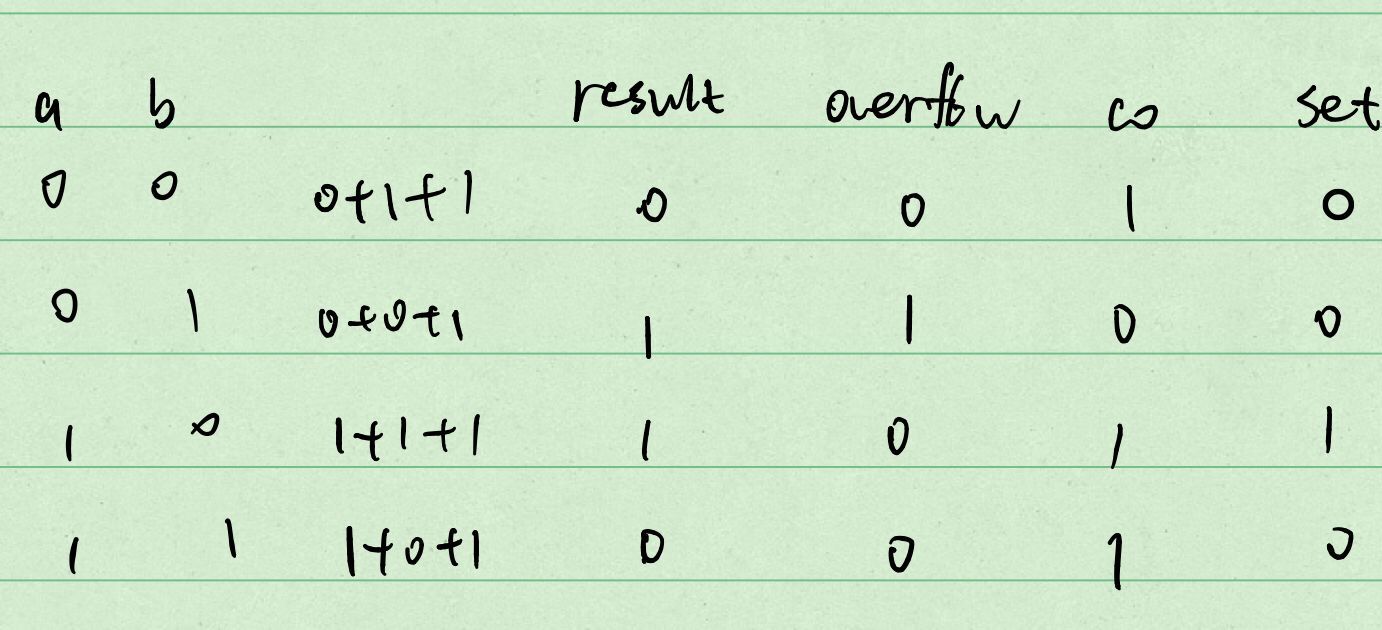 a b result overflow co set
0 0 0+1+1 0 0 1 0
0 1 0+0+1 1 1 0 0
1 0 1+1+1 1 0 1 1
1 1 1+0+1 0 0 1 0